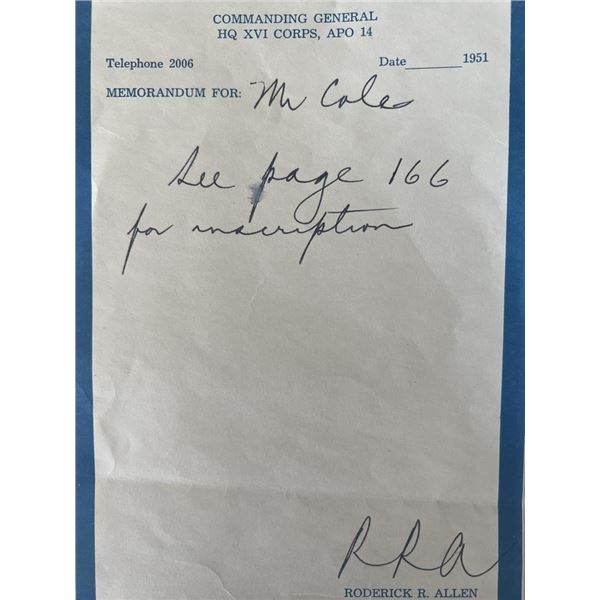 COMMANDING GENERAL
HQ XVI CORPS, APO 14
Telephone 2006 Date________1951
MEMORANDUM FOR: Mr Coles
See page 166
for inscription
RRA
RODERICK R. ALLEN